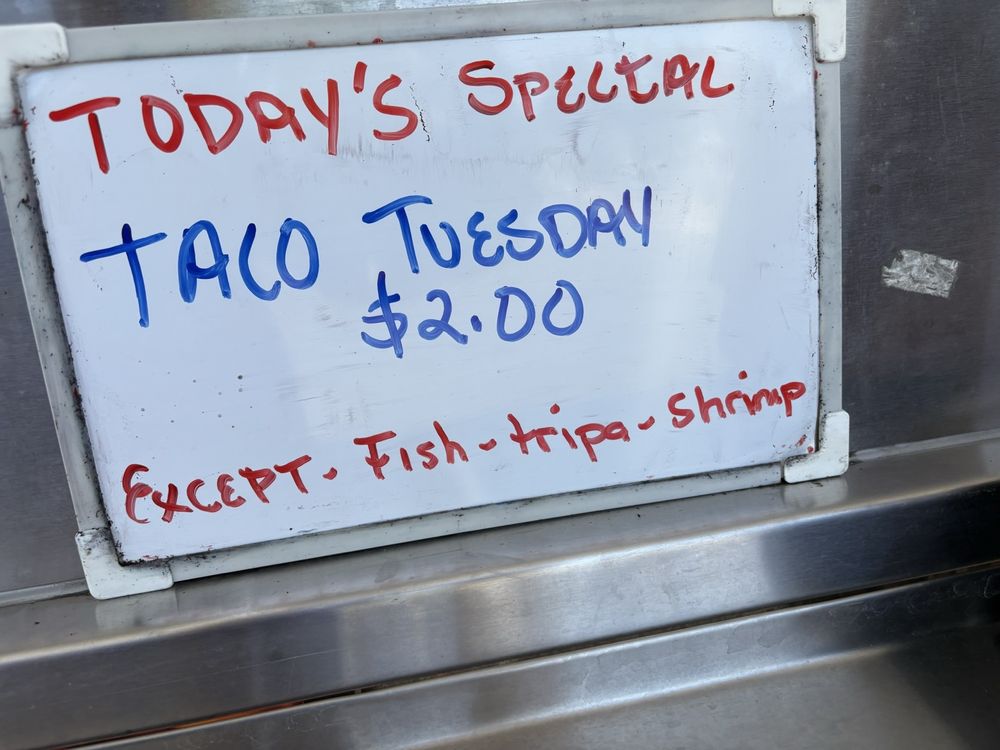 TODAY'S SPECIAL
TACO TUESDAY
$2.00
EXCEPT - Fish - tripa - Shrimp